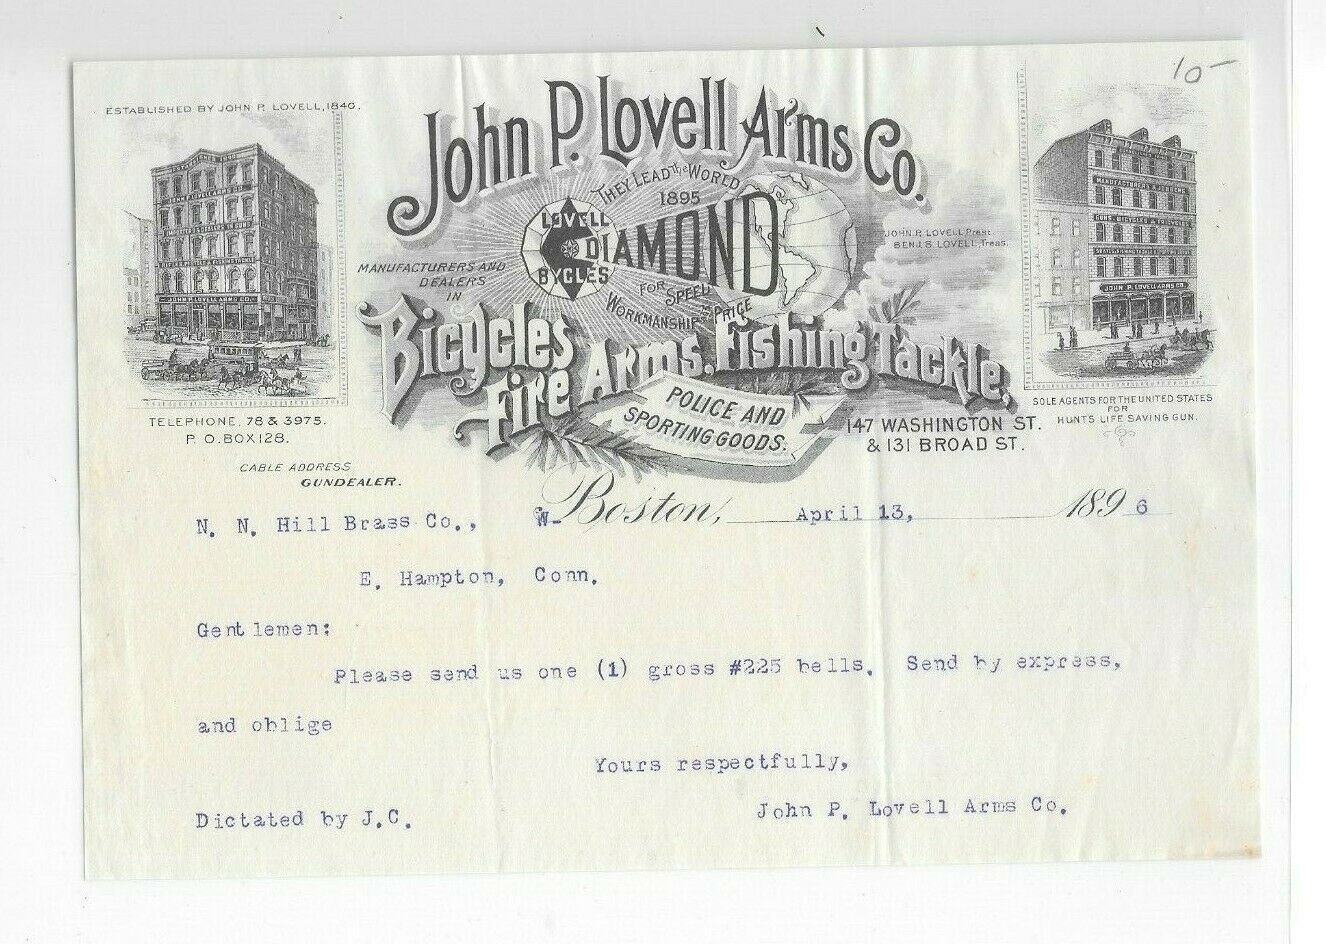 10-
ESTABLISHED BY JOHN P. LOVELL, 1840.
John P. Lovell Arms Co.
THEY LEAD the WORLD
1895
LOVELL
DIAMOND
BYCLES
FOR SPEED
WORKMANSHIP AND PRICE
JOHN P. LOVELL Prest.
BENJ. S. LOVELL, Treas.
MANUFACTURERS AND
DEALERS
IN
Bicycles
Fire Arms, Fishing Tackle,
POLICE AND
SPORTING GOODS.
JOHN P. LOVELL ARMS CO.
JOHN P. LOVELL ARMS CO.
TELEPHONE, 78 & 3975.
P. O. BOX 128.
CABLE ADDRESS
GUNDEALER.
147 WASHINGTON ST.
& 131 BROAD ST.
SOLE AGENTS FOR THE UNITED STATES
FOR
HUNTS LIFE SAVING GUN.
W- Boston, April 13, 1896
N. N. Hill Brass Co.,
E. Hampton, Conn.
Gentlemen:
Please send us one (1) gross #225 bells. Send by express,
and oblige
Yours respectfully,
John P. Lovell Arms Co.
Dictated by J.C.